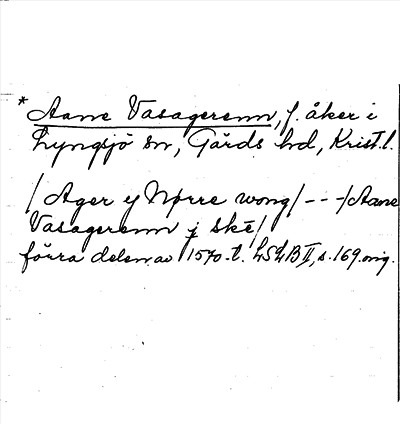 * Aane Vasagerenn, f. åker i
Lyngsjö sn, Gärds hd, Krist.l.
/Ager ij Nørre wong/ - - -/Aane
Vasagerenn j skë/
förra delen av 1570-t. LSLB II, s. 169 orig.